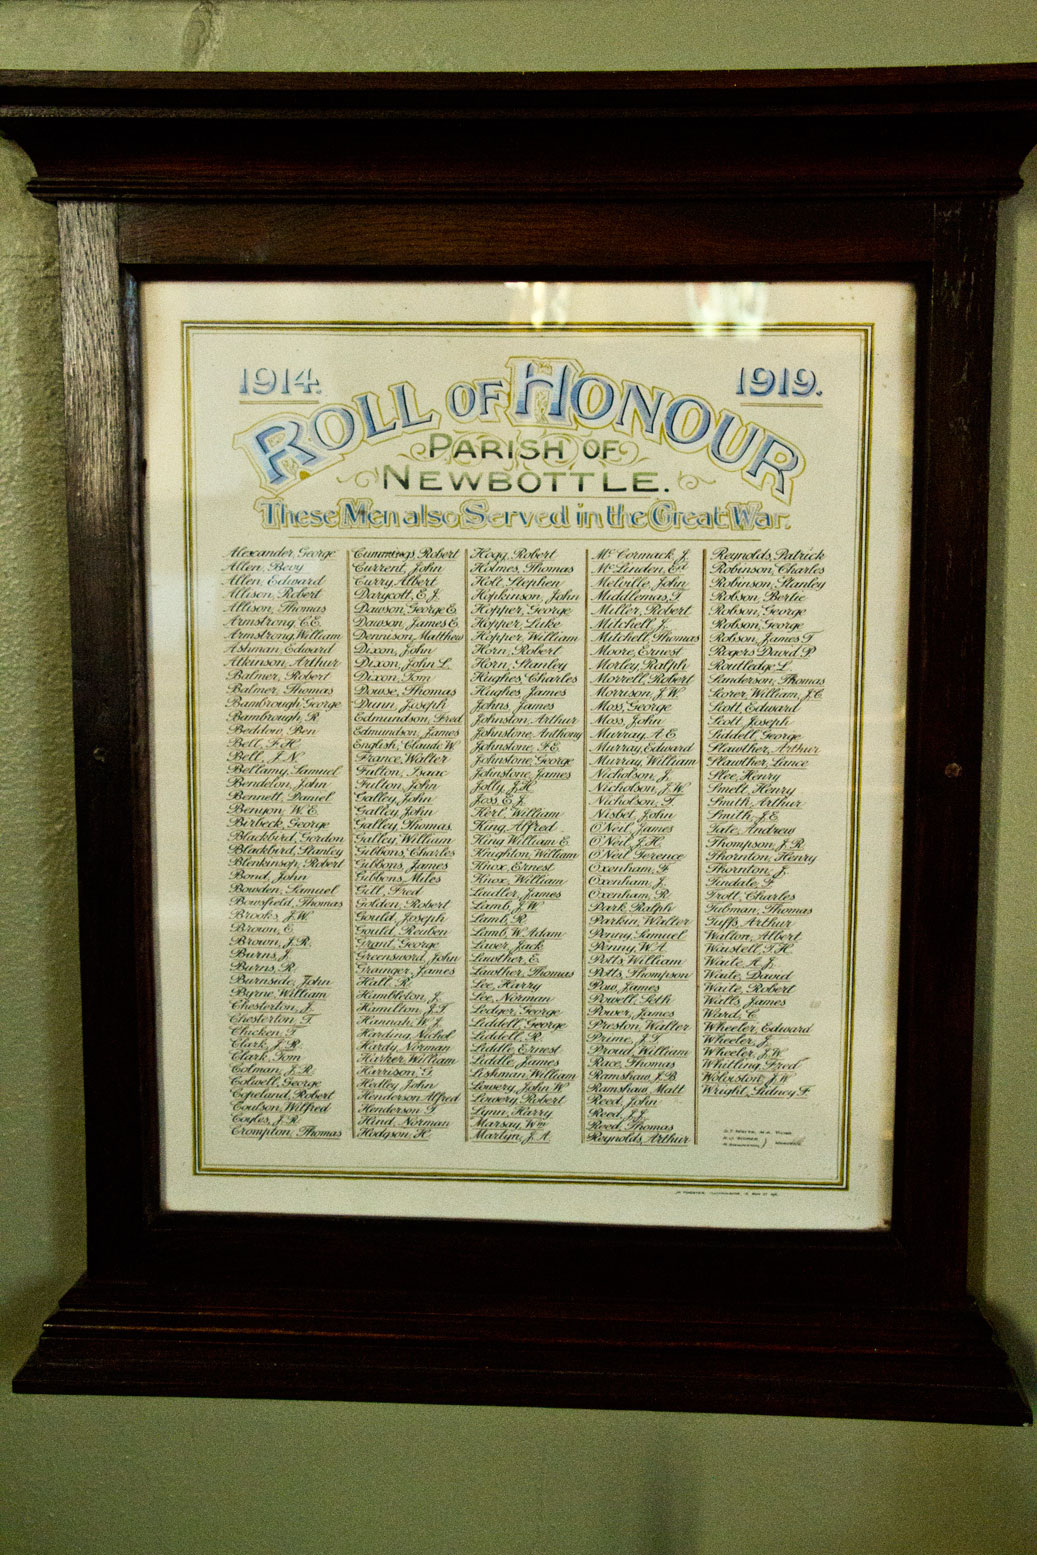 1914. 1919.
ROLL OF HONOUR
PARISH OF
NEWBOTTLE.
These Men also Served in the Great War.
Alexander, George
Allen, Bevy
Allen, Edward
Allison, Robert
Allison, Thomas
Armstrong, C.E.
Armstrong, William
Ashman, Edward
Atkinson, Arthur
Balmer, Robert
Balmer, Thomas
Bambrough, George
Bambrough, R.
Beddow, Ben
Bell, F.H.
Bell, J.N.
Bellamy, Samuel
Bendelon, John
Bennett, Daniel
Benyon, W.E.
Birbeck, George
Blackbird, Gordon
Blackbird, Stanley
Blenkinsop, Robert
Bond, John
Bowden, Samuel
Bowsfield, Thomas
Brooks, J.W.
Brown, E.
Brown, J.R.
Burns, J.
Burns, R.
Burnside, John
Byrne, William
Chesterton, J.
Chesterton, T.
Chicken, T.
Clark, J.R.
Clark, Tom
Colman, J.R.
Colwell, George
Copeland, Robert
Coulson, Wilfred
Coyles, J.R.
Crompton, Thomas
Cummings, Robert
Current, John
Curry, Albert
Darycott, E.J.
Dawson, George E.
Dawson, James E.
Dennison, Matthew
Dixon, John
Dixon, John L.
Dixon, Tom
Douse, Thomas
Dunn, Joseph
Edmundson, Fred
Edmundson, James
English, Claude W.
France, Walter
Fulton, Isaac
Fulton, John
Galley, John
Galley, John
Galley, Thomas
Galley, William
Gibbons, Charles
Gibbons, James
Gibbons, Miles
Gill, Fred
Golden, Robert
Gould, Joseph
Gould, Reuben
Grant, George
Greensword, John
Grainger, James
Hall, R.
Hambleton, J.
Hamilton, J.T.
Hannah, W.J.
Harding, Nichol
Hardy, Norman
Harker, William
Harrison, G.
Hedley, John
Henderson, Alfred
Henderson, T.
Hind, Norman
Hodgson, H.
Hogg, Robert
Holmes, Thomas
Holt, Stephen
Hopkinson, John
Hopper, George
Hopper, Luke
Hopper, William
Horn, Robert
Horn, Stanley
Hughes, Charles
Hughes, James
Johns, James
Johnston, Arthur
Johnstone, Anthony
Johnstone, F.E.
Johnstone, George
Johnstone, James
Jolly, J.H.
Joss, E.J.
Kerl, William
King, Alfred
King, William E.
Knighton, William
Knox, Ernest
Knox, William
Laidler, James
Lamb, J.W.
Lamb, R.
Lamb, W. Adam
Laver, Jack
Lawther, E.
Lawther, Thomas
Lee, Harry
Lee, Norman
Ledger, George
Liddell, George
Liddell, R.
Liddle, Ernest
Liddle, James
Lishman, William
Lowery, John W.
Lowery, Robert
Lynn, Harry
Marsay, Wm
Martyn, J.A.
McCormack, J.
McLinden, Ed
Melville, John
Middlemas, T.
Miller, Robert
Mitchell, J.
Mitchell, Thomas
Moore, Ernest
Morley, Ralph
Morrell, Robert
Morrison, J.W.
Moss, George
Moss, John
Murray, A.E.
Murray, Edward
Murray, William
Nicholson, J.
Nicholson, J.W.
Nicholson, T.
Nisbet, John
O'Neil, James
O'Neil, J.H.
O'Neil, Terence
Oxenham, F.
Oxenham, J.
Oxenham, R.
Park, Ralph
Parkin, Walter
Penny, Samuel
Penny, W.A.
Potts, William
Potts, Thompson
Pow, James
Powell, Seth
Power, James
Preston, Walter
Prime, J.T.
Proud, William
Race, Thomas
Ramshaw, J.B.
Ramshaw, Matt
Reed, John
Reed, J.J.
Reed, Thomas
Reynolds, Arthur
Reynolds, Patrick
Robinson, Charles
Robinson, Stanley
Robson, Bertie
Robson, George
Robson, George
Robson, James T.
Rogers, David P.
Routledge, L.
Sanderson, Thomas
Scorer, William, J.C.
Scott, Edward
Scott, Joseph
Siddell, George
Slawther, Arthur
Slawther, Lance
Slee, Henry
Smell, Henry
Smith, Arthur
Smith, J.E.
Tate, Andrew
Thompson, J.R.
Thornton, Henry
Thornton, J.
Tindale, F.
Trott, Charles
Tubman, Thomas
Tuffs, Arthur
Walton, Albert
Wastell, T.H.
Waite, A.J.
Waite, David
Waite, Robert
Walls, James
Ward, C.
Wheeler, Edward
Wheeler, J.
Wheeler, J.W.
Whitling, Fred
Wolouston, J.W.
Wright, Sidney F.